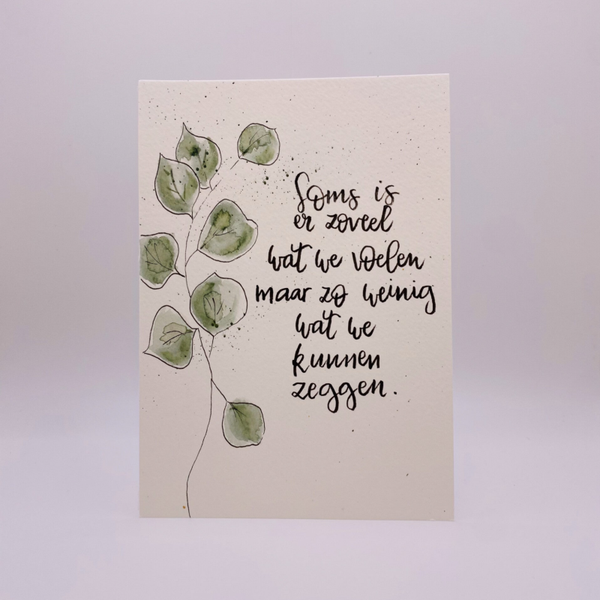 Soms is
er zoveel
wat we voelen
maar zo weinig
wat we
kunnen
zeggen.